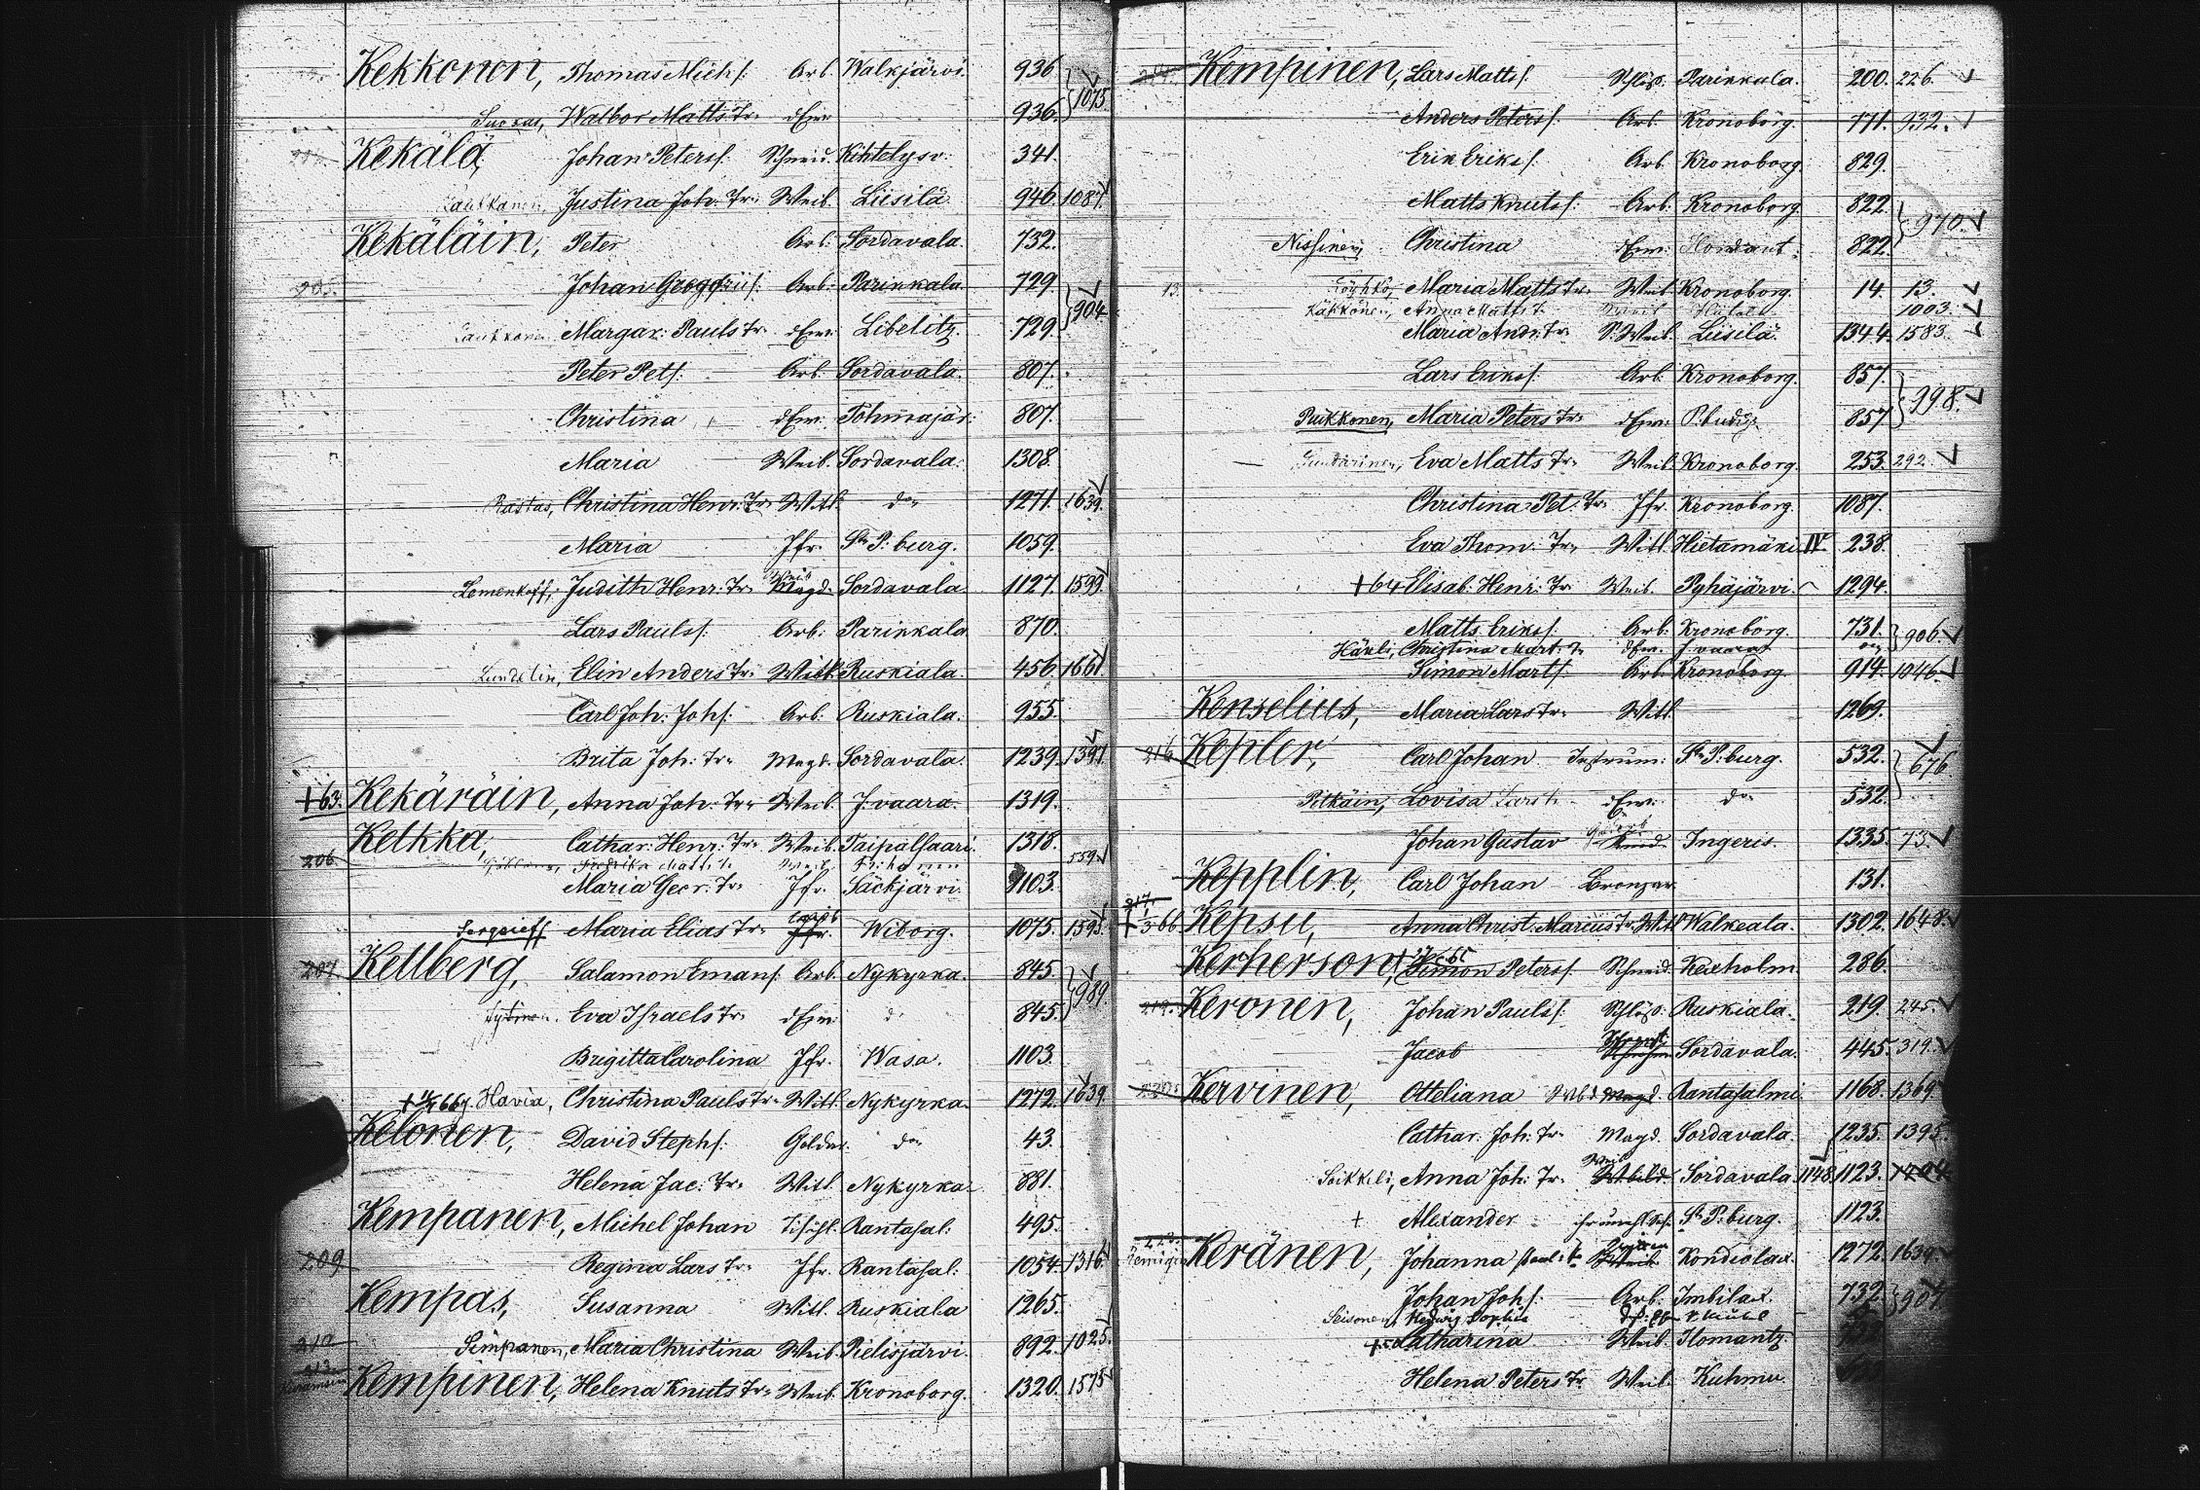 Kekkonen, Thomas Michs. Arb. Walkjärvi. 936. 1075.
Walbor Matts Tr. dEw. 936.
Kekälä, Johan Peterss. Schneid. Kihtelysv. 341.
Justina Joh. Tr. Weib. Liisilä 946. 1087.
Kekäläin, Peter Arb. Sordavala. 732.
205. Johan Arb. Parikkala 729. 904.
Margar: Pauls Tr. dEw. Libelitz. 729.
Peter Pets. Arb. Sordavala. 807.
Christina dEw. Tohmajär: 807.
Maria Weib. Sordavala. 1308.
Rästas, Christina Henr. Tr. Witt. do 1271. 1639.
Maria Jfr. St. P: burg. 1059.
Lemenkoff, Judith Henr: Tr. Sordavala. 1127. 1599.
Lars Paulss. Arb. Parikkala 870.
Lundelin, Elin Anders Tr. Witt. Ruskiala. 456. 1661.
Carl Joh. Johs. Arb. Ruskiala. 955.
Brita Joh: Tr. Magd. Sordavala. 1239. 1397.
+63. Kekäräin, Anna Joh: Tr. Weib. Jvaara. 1319.
Kelkka, Cathar: Henr: Tr. Weib. Taipalsaari. 1318.
206. Fredrika Matts Tr. 559
Maria Geor: Tr. Jfr. Säckjärvi. 1103.
Sergeieff Maria Elias Tr. Wiborg. 1075. 1595.
207. Kellberg, Salamon Emans. Arb. Nykyrka. 845. 989.
Eva Israels Tr. dEw. d. 845.
Brigitta Carolina Jfr. Wasa. 1103.
Havia, Christina Pauls Tr. Witt. Nykyrka. 1272. 1639
Kelonen, David Stephs. Golda. do 43.
Helena Jac: Tr. Witt. Nykyrka. 881.
Kempanen, Michel Johan Tischl. Rantasal: 495.
209 Regina Lars Tr. Jfr. Rantasal: 1054. 1316.
Kempas, Susanna Witt. Ruskiala 1265.
212 Simpanen, Maria Christina Weib. Pielisjärvi. 892. 1025.
213 Kempinen, Helena Knuts Tr. Weib. Kronoborg. 1320. 1575
Kempinen, Lars Matts. Schloss. Parikkala. 200. 226.
Anders Peterss. Arb. Kronoborg. 771. 932.
Erik Eriks. Arb. Kronoborg. 829.
Matts Knuts. Arb. Kronoborg. 822. 970.
Nissinen, Christina dEw. 822.
13. Maria Matts Tr. Weib. Kronoborg. 14. 13.
Käkkönen, Anna Matts Tr. 1003.
Maria Andr: Tr. S. Weib. Liisilä. 1344. 1583.
Lars Eriks. Arb. Kronoborg. 857. 998.
Puikkonen, Maria Peters Tr. dEw. P. burg. 857.
Eva Matts Tr. Weib. Kronoborg. 253. 292.
Christina Pet: Tr. Jfr. Kronoborg. 1087.
Eva Thom: Tr. Witt. Hietamäki IV 238.
+64 Elisab: Henr: Tr. Weib. Pyhäjärvi. 1294.
Matts Eriks. Arb. Kronoborg. 731. 906.
Christina Mart: Tr. dEw. Jvaara
Simon Marts. Arb. Kronoborg. 914. 1046.
Kenselius, Maria Lars Tr. Witt. 1269.
216 Kepler, Carl Johan Instrum: St. P: burg. 532. 676.
Pitkäin, Lovisa Lars Tr. dEw. do 532.
Johan Gustav Ingeris. 1335. 73.
Kepplin, Carl Johan Bronzar. 131.
217. Kepsu, Anna Christ: Marcus Tr. Witt. Walkeala. 1302. 1648.
Kerherson, Simon Peterss. Schneid. Kexholm. 286.
219. Keronen, Johan Paulss. Schloss: Ruskiala. 219. 245.
Jacob Sordavala. 445. 319.
220. Kervinen, Otteliana Magd. Rantasalmi. 1168. 1369.
Cathar. Joh: Tr. Magd. Sordavala. 1235. 1395.
Soikkeli, Anna Joh: Tr. Weib Sordavala. 1148. 1123. 1204.
+ Alexander St. P: burg. 1123.
Keränen, Johanna Weib. Kondiolax. 1272. 1639.
Johan Johs. Arb. Imbilax. 732. 907.
Hedvig Sophia
Catharina Weib. Ilomantz
Helena Peters Tr. Weib. Kuhmo.